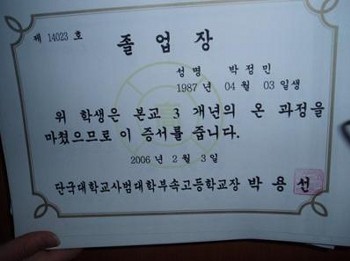 제 14023 호
졸 업 장
성 명 박 정 민
1987 년 04 월 03 일생
위 학생은 본교 3 개년의 온 과정을
마쳤으므로 이 증서를 줍니다.
2006 년 2 월 3 일
단국대학교사범대학부속고등학교장 박 용 선